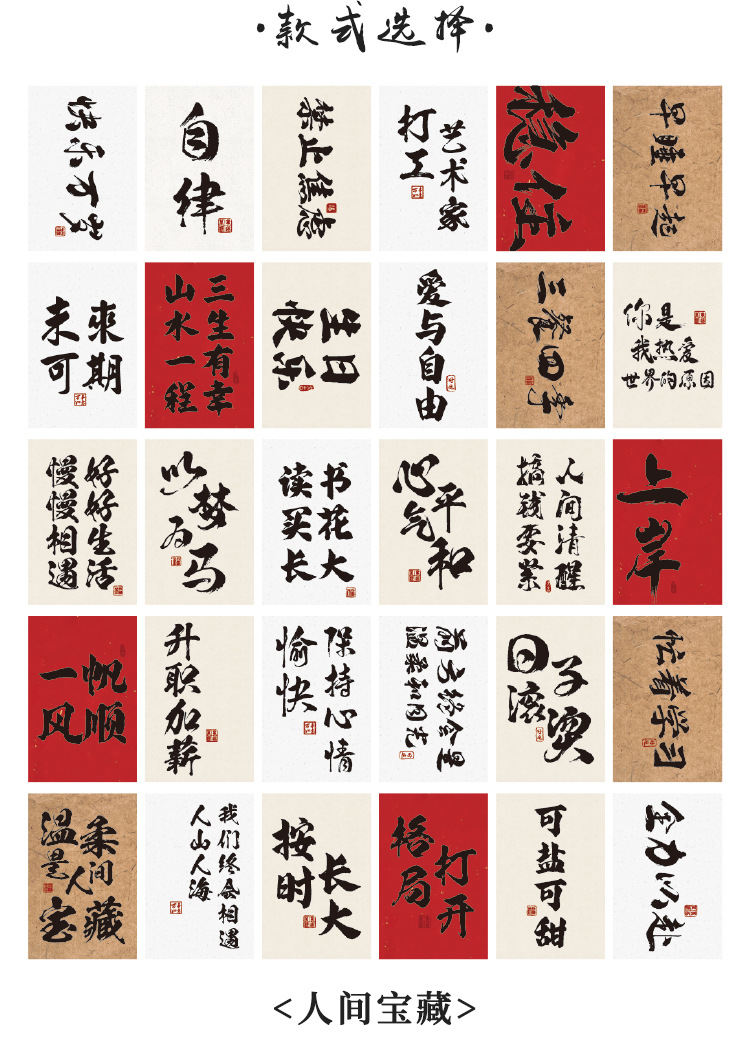 ·款式选择·
快乐万岁
自律
禁止焦虑
打工
艺术家
稳住
早睡早起
未来可期
三生有幸
山水一程
生日
快乐
爱与自由
三餐四季
你是
我热爱
世界的原因
好好生活
慢慢相遇
以梦为马
书花大
读买长
心平气和
人间清醒
搞钱要紧
上岸
一帆风顺
升职加薪
保持心情
愉快
温柔和月光
日子滚烫
忙着学习
温柔是人间宝藏
我们终会相遇
人山人海
按时长大
打开格局
可盐可甜
全力以赴
<人间宝藏>